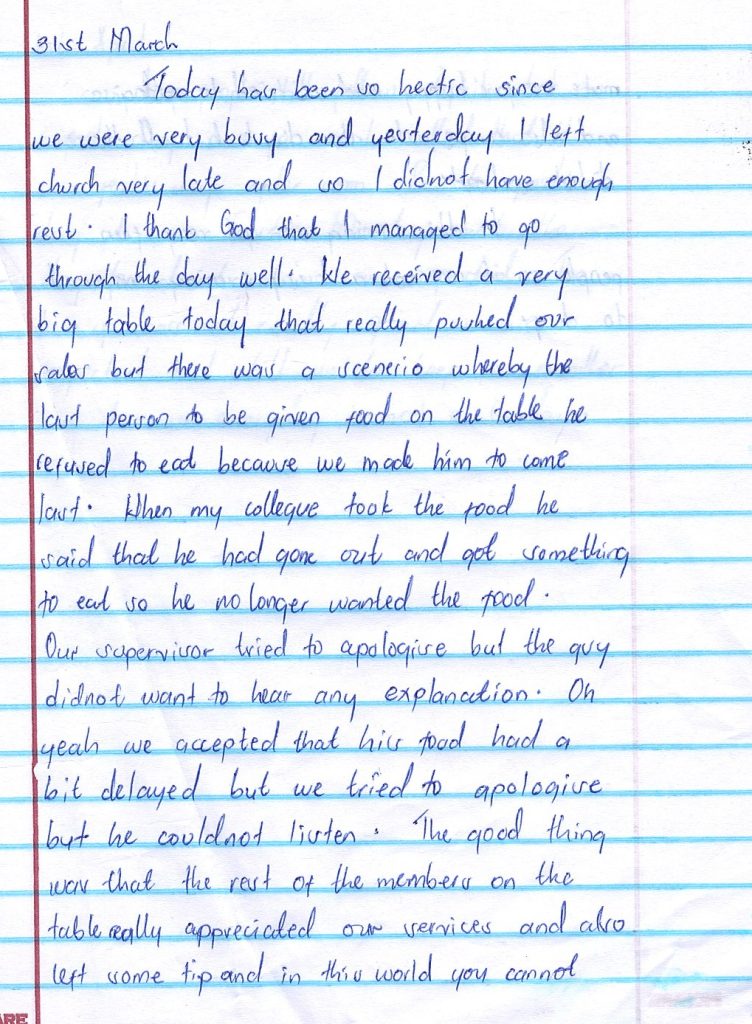 31st March
Today has been so hectic since
we were very busy and yesterday I left
church very late and so I didnot have enough
rest. I thank God that I managed to go
through the day well. We received a very
big table today that really pushed our
sales but there was a scenerio whereby the
last person to be given food on the table he
refused to eat because we made him to come
last. When my collegue took the food he
said that he had gone out and got something
to eat so he no longer wanted the food.
Our supervisor tried to apologise but the guy
didnot want to hear any explanation. Oh
yeah we accepted that his food had a
bit delayed but we tried to apologise
but he couldnot listen. The good thing
was that the rest of the members on the
table really appreciated our services and also
left some tip and in this world you cannot
ARE